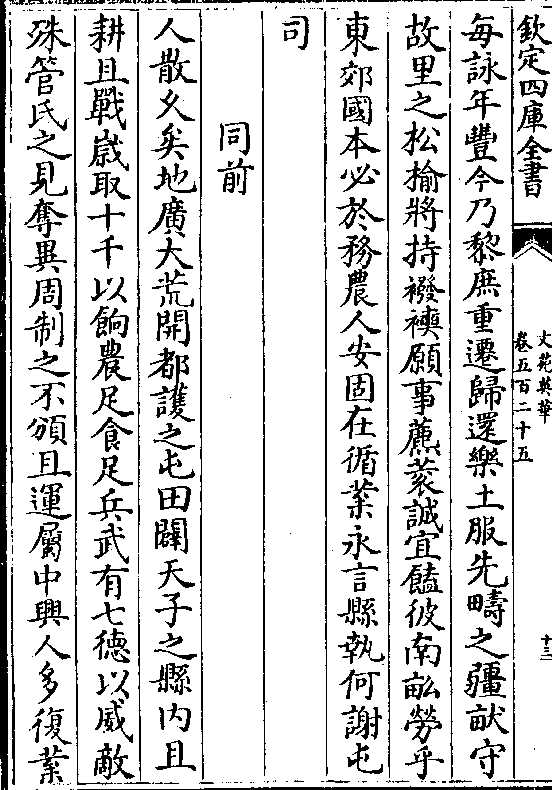 欽定四庫全書
文苑英華
卷五百二十五
十三
每詠年豐今乃黎庶重遷歸還樂土服先疇之疆畎守
故里之松揄將持襏襫願事藨蓘誠宜饁彼南畝勞乎
東郊國本必於務農人安固在循業永言縣執何謝屯
司
同前
人散久矣地廣大荒開都護之屯田闢天子之縣内且
耕且戰嵗取十千以餉農足食足兵武有七德以威敵
殊管氏之見奪異周制之不頒且運屬中興人多復業